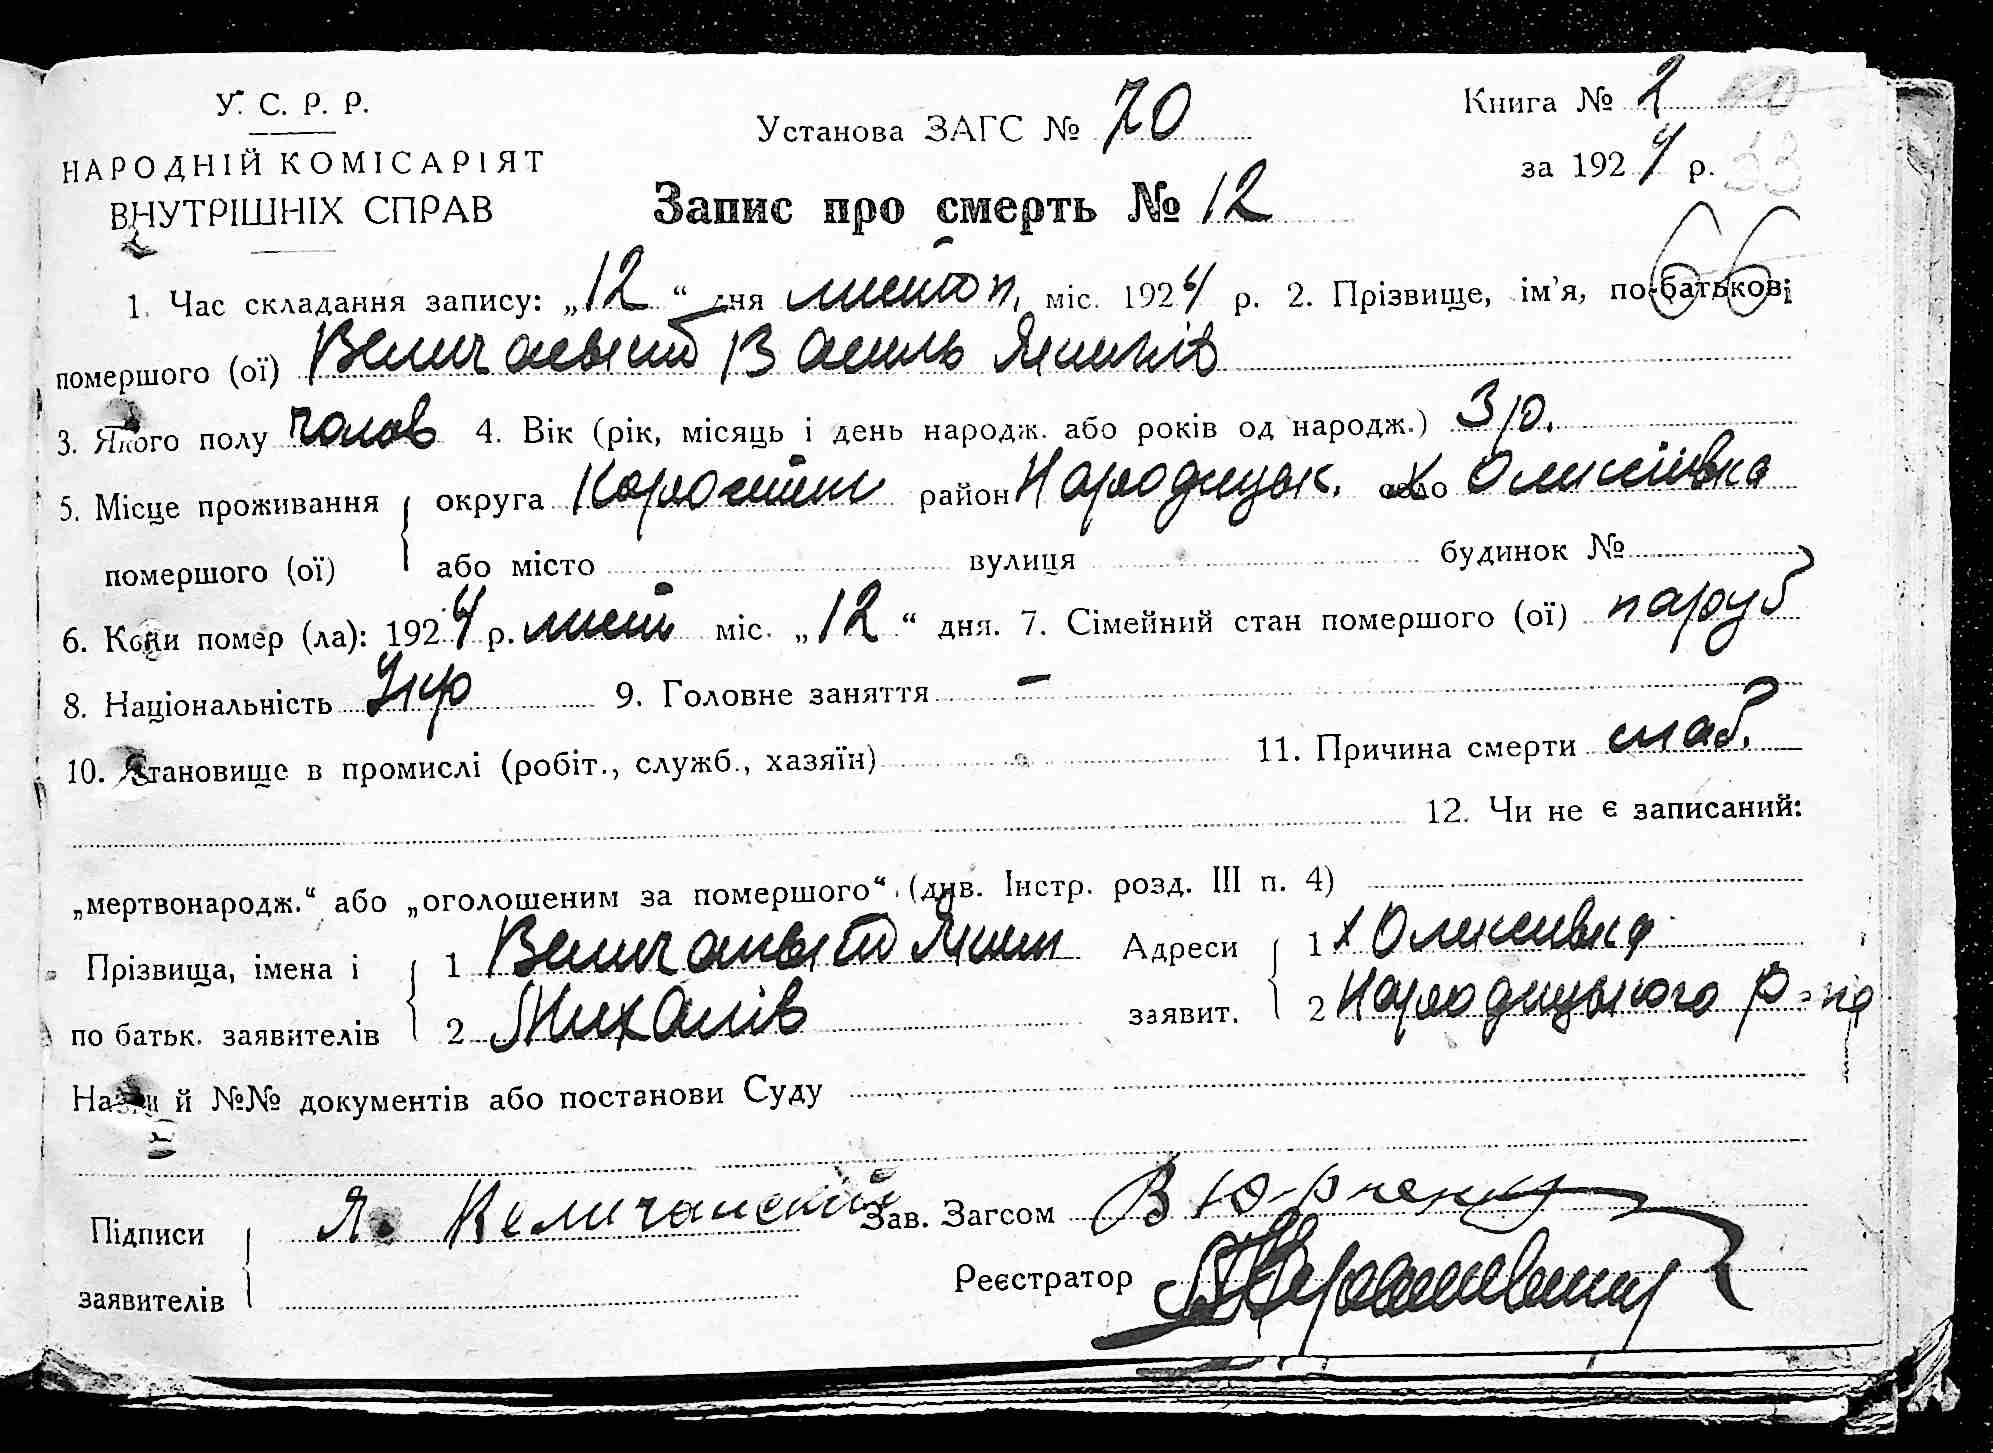 У. С. Р. Р.
НАРОДНІЙ КОМІСАРІЯТ
ВНУТРІШНІХ СПРАВ
Установа ЗАГС № 70
Книга № 2
за 1924 р. 33
Запис про смерть № 12
1. Час складання запису: „12“ дня листоп. міс. 1924 р. 2. Прізвище, ім'я, по-батькові
помершого (ої) Василь
3. Якого полу чолов 4. Вік (рік, місяць і день народж. або років од народж.) 3 р.
5. Місце проживання округа Коростен район Народицьк. село
помершого (ої) або місто вулиця будинок №
6. Коли помер (ла): 1924 р. лист міс. „12“ дня. 7. Сімейний стан помершого (ої) паруб
8. Національність Укр 9. Головне заняття –
10. Становище в промислі (робіт., служб., хазяїн) 11. Причина смерти слаб.
12. Чи не є записаний:
„мертвонародж.“ або „оголошеним за помершого“. (див. Інстр. розд. III п. 4)
Прізвища, імена і 1 Адреси 1 х
по батьк. заявителів 2 Михалів заявит. 2 Народицького р-на
Назви й №№ документів або постанови Суду
Підписи Я. Величанский Зав. Загсом В Юрченко
заявителів Реєстратор